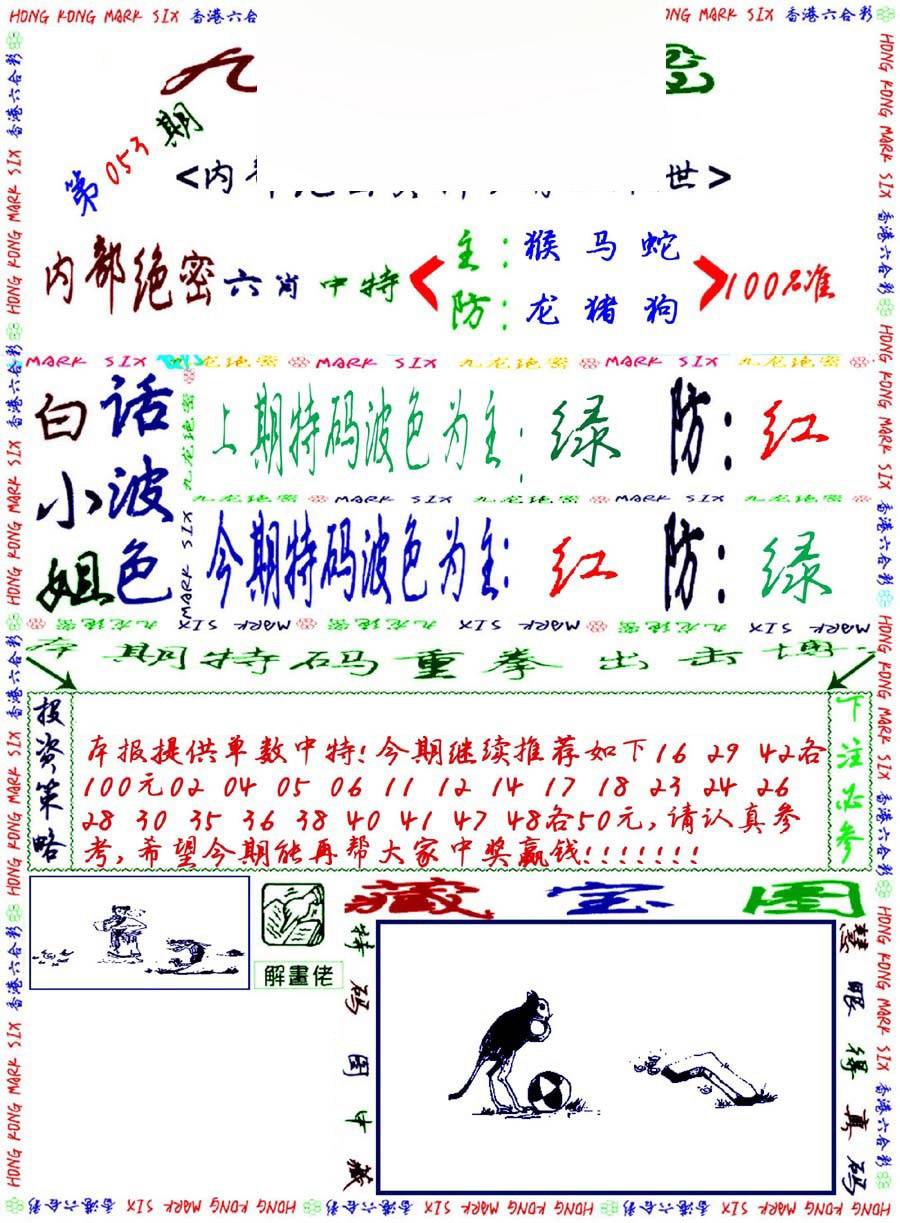 HONG KONG MARK SIX 香港六合彩
ONG MARK SIX 香港六合彩
九
密
第053期
<内部
世>
内部绝密六肖中特
主:猴马蛇
防:龙猪狗
100%准
MARK SIX 九龙绝密 MARK SIX 九龙绝密 MARK SIX 九龙绝密
白小姐
话波色
上期特码波色为主:绿 防:红
九龙绝密 MARK SIX 九龙绝密 MARK SIX 九龙绝密
今期特码波色为主:红 防:绿
九龙绝密 MARK SIX 九龙绝密 MARK SIX 九龙绝密 MARK SIX
本期特码重拳出击博
投资策略
本报提供单数中特!今期继续推荐如下16 29 42各
100元02 04 05 06 11 12 14 17 18 23 24 26
28 30 35 36 38 40 41 47 48各50元,请认真参
考,希望今期能再帮大家中奖赢钱!!!!!!!
下注必参
解畫佬
藏宝图
特码图中藏
慧眼得真码
HONG KONG MARK SIX 香港六合彩 HONG KONG MARK SIX 香港六合彩 HONG KONG MARK SIX 香港六合彩